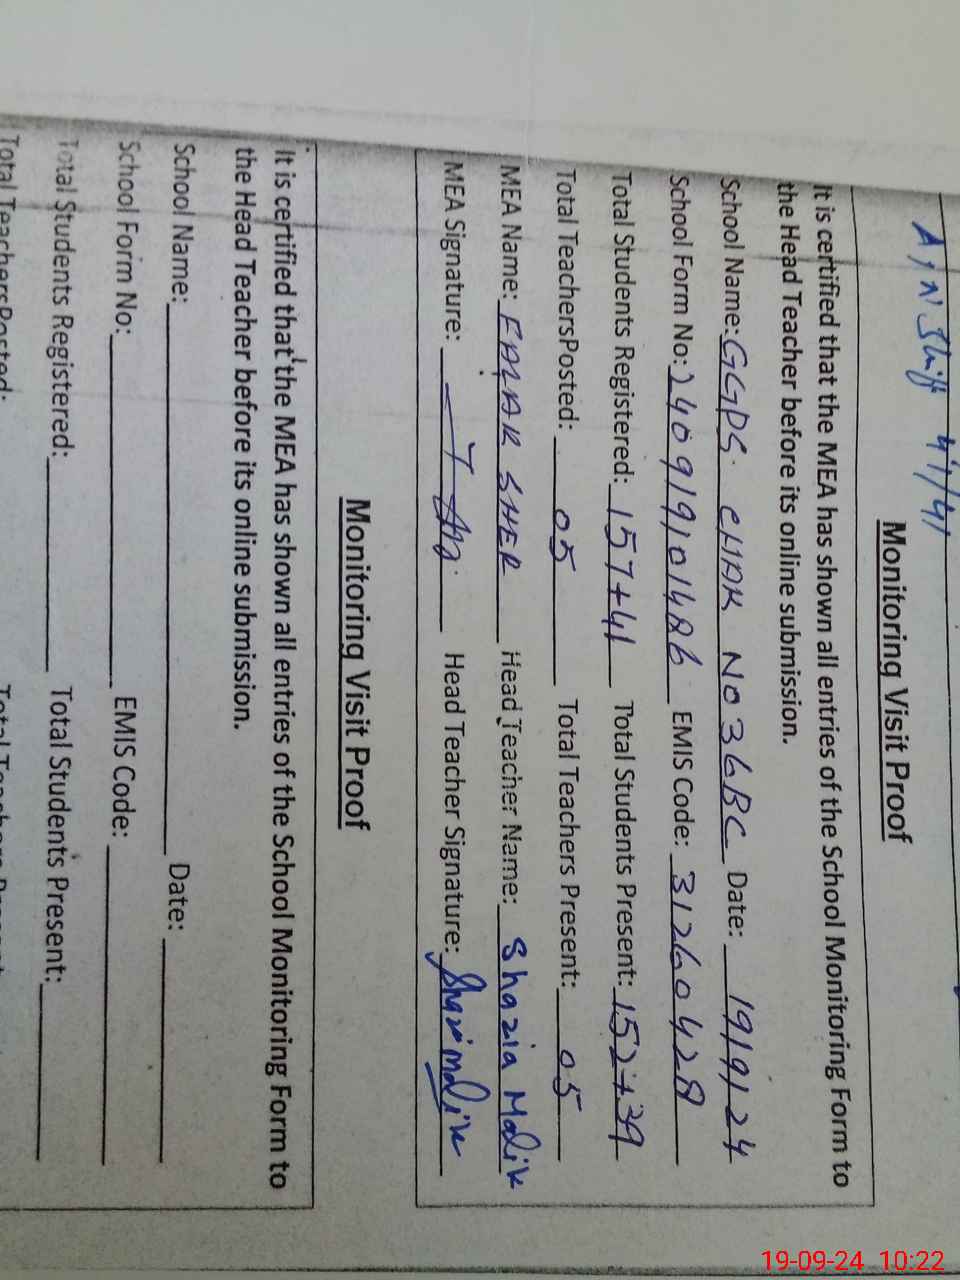 A/N Shift 41/41
Monitoring Visit Proof
It is certified that the MEA has shown all entries of the School Monitoring Form to
the Head Teacher before its online submission.
School Name: GGPS. CHAK NO 36BC Date: 19/9/24
School Form No: 240919101426 EMIS Code: 31260428
Total Students Registered: 157+41 Total Students Present: 152+39
Total TeachersPosted: 05 Total Teachers Present: 05
MEA Name: SHER Head Teacher Name: Shazia Malik
MEA Signature: Head Teacher Signature:
Monitoring Visit Proof
It is certified that the MEA has shown all entries of the School Monitoring Form to
the Head Teacher before its online submission.
School Name: Date:
School Form No: EMIS Code:
Total Students Registered: Total Students Present:
Total TeachersPosted: Total Teachers Present
19-09-24 10:22